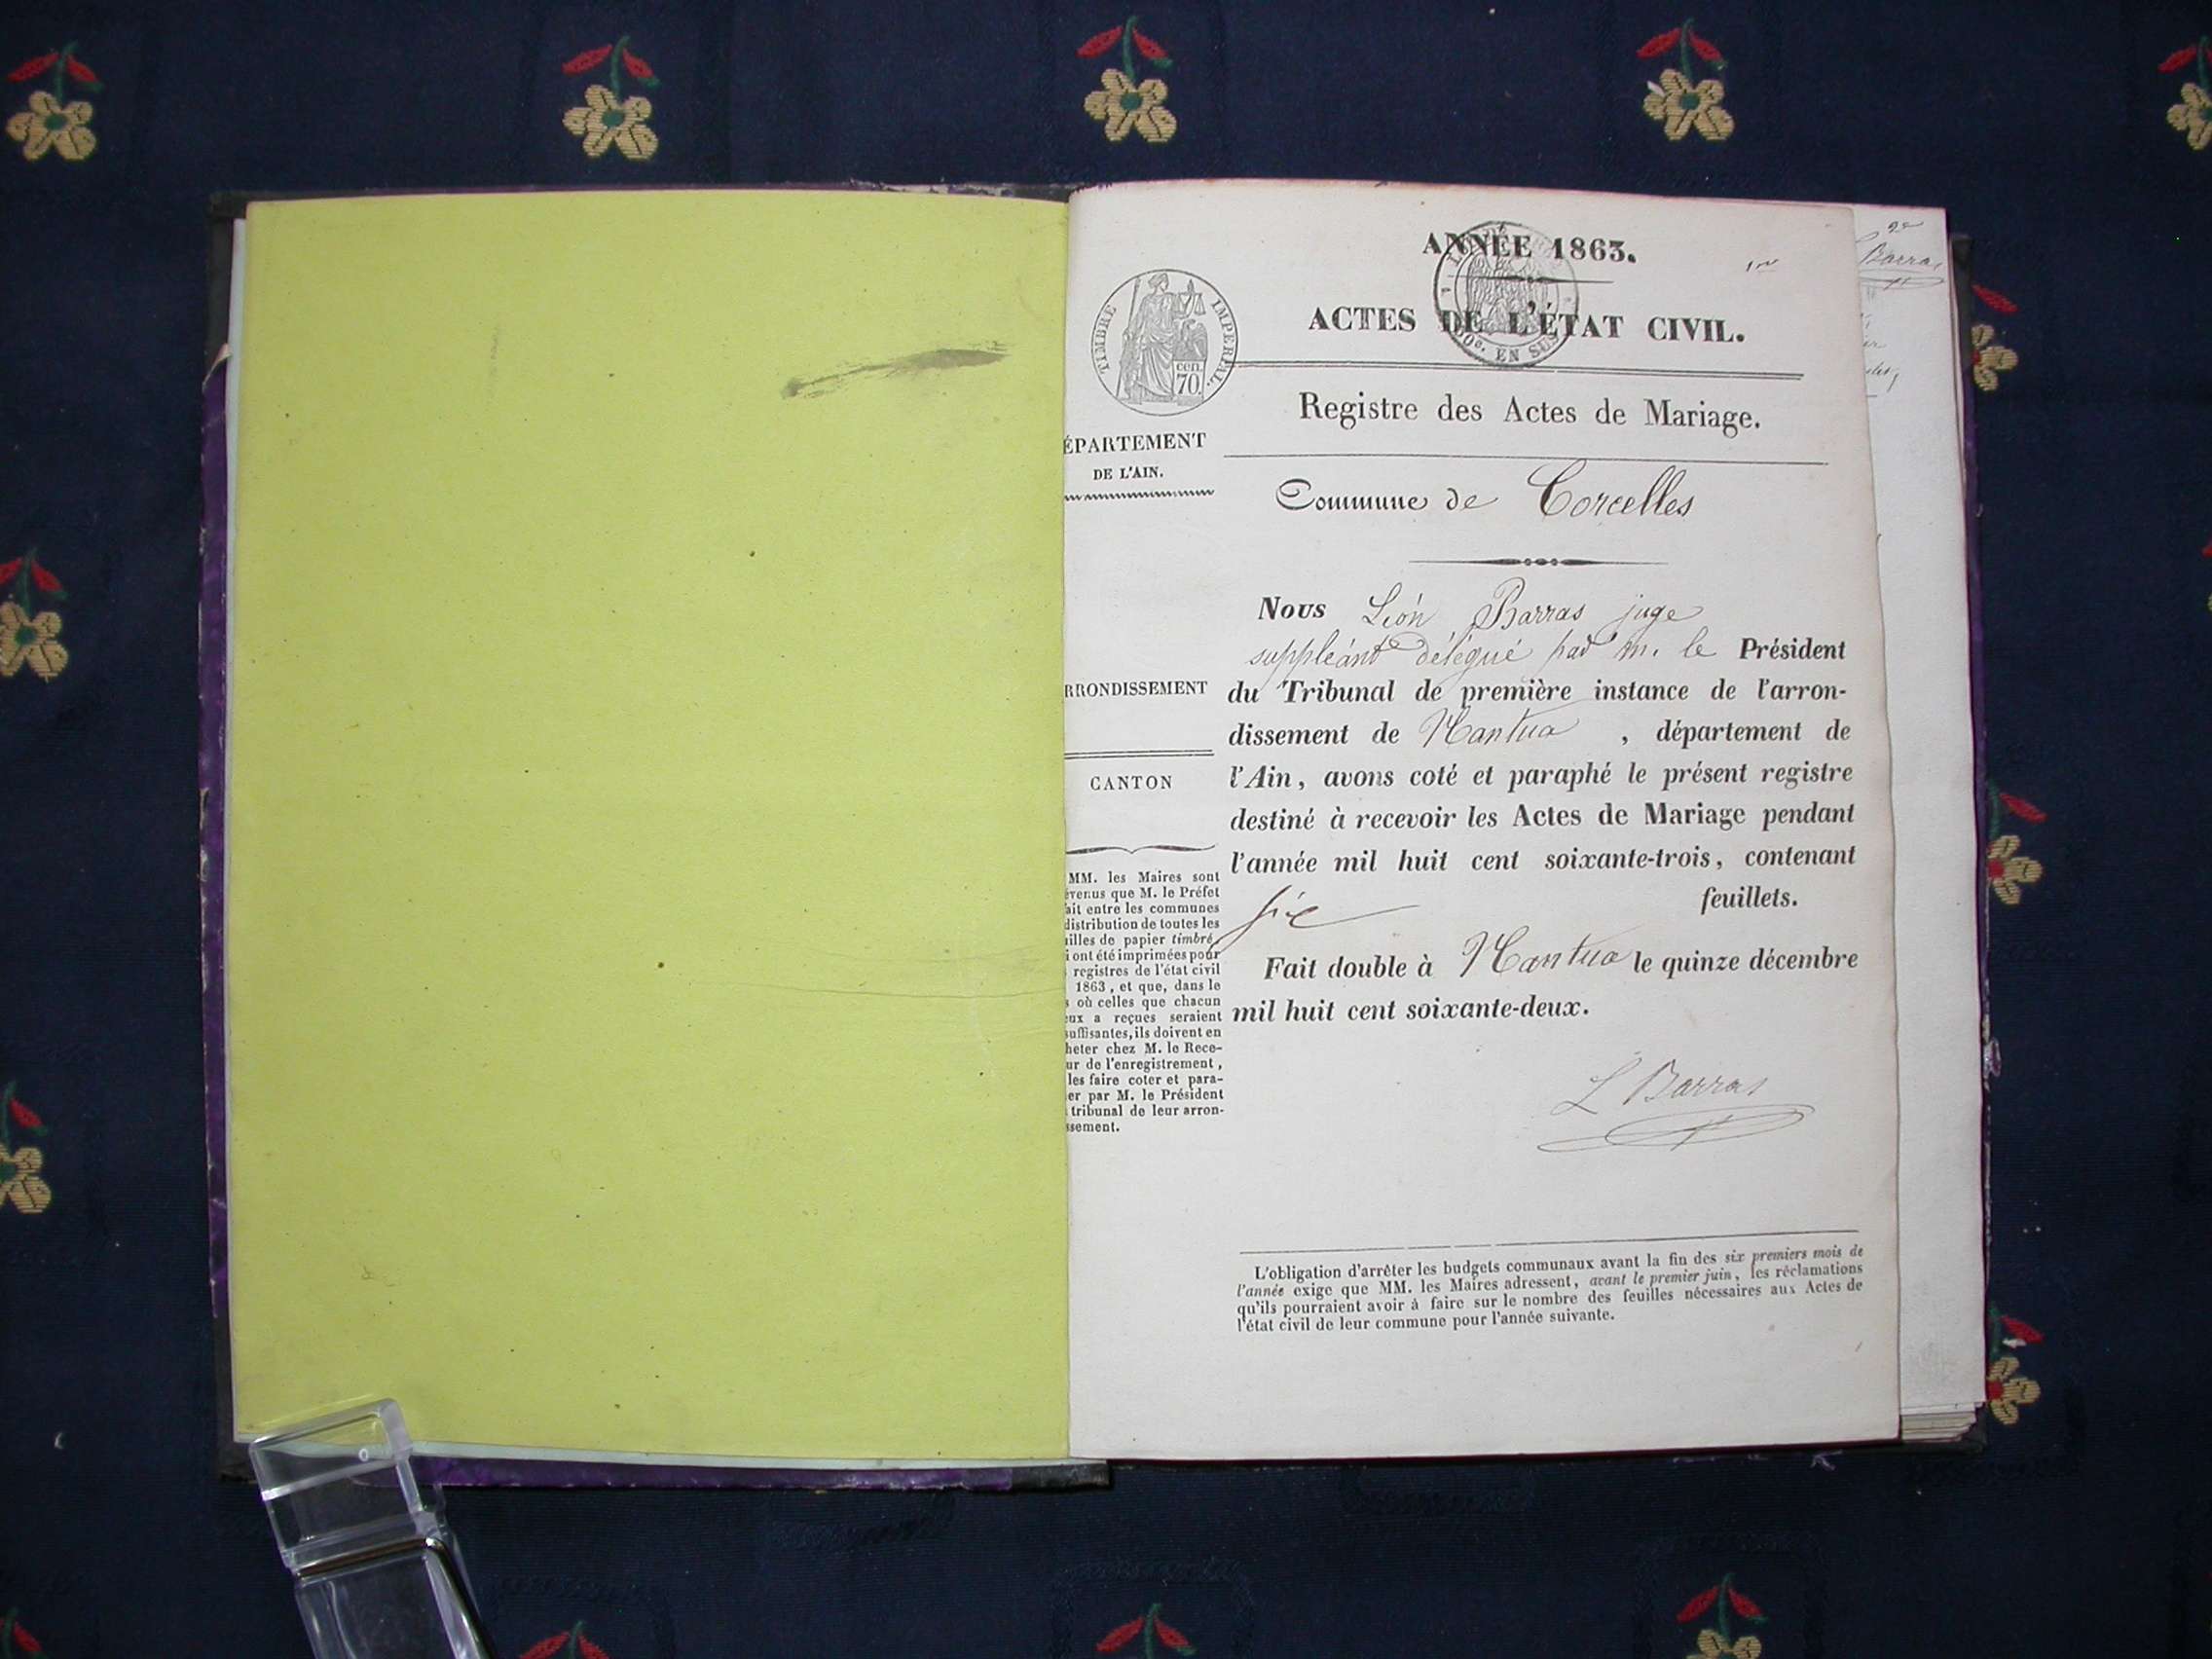 ANNÉE 1863.
1er
ACTES DE L'ÉTAT CIVIL.
TIMBRE IMPERIAL.
cen.
70.
0c. EN SUS
Registre des Actes de Mariage.
ÉPARTEMENT
DE L'AIN.
Commune de Corcelles
Nous Léon Barras juge
suppléant délégué par m. le Président
du Tribunal de première instance de l'arron-
dissement de Nantua , département de
l'Ain, avons coté et paraphé le présent registre
destiné à recevoir les Actes de Mariage pendant
l'année mil huit cent soixante-trois, contenant
six feuillets.
Fait double à Nantua le quinze décembre
mil huit cent soixante-deux.
L Barras
RRONDISSEMENT
CANTON
MM. les Maires sont
évenus que M. le Préfet
ait entre les communes
distribution de toutes les
illes de papier timbré,
i ont été imprimées pour
registres de l'état civil
1863, et que, dans le
s où celles que chacun
eux a reçues seraient
suffisantes, ils doivent en
heter chez M. le Rece-
ur de l'enregistrement,
les faire coter et para-
er par M. le Président
tribunal de leur arron-
ssement.
L'obligation d'arrêter les budgets communaux avant la fin des six premiers mois de
l'année exige que MM. les Maires adressent, avant le premier juin, les réclamations
qu'ils pourraient avoir à faire sur le nombre des feuilles nécessaires aux Actes de
l'état civil de leur commune pour l'année suivante.
2e
Barras